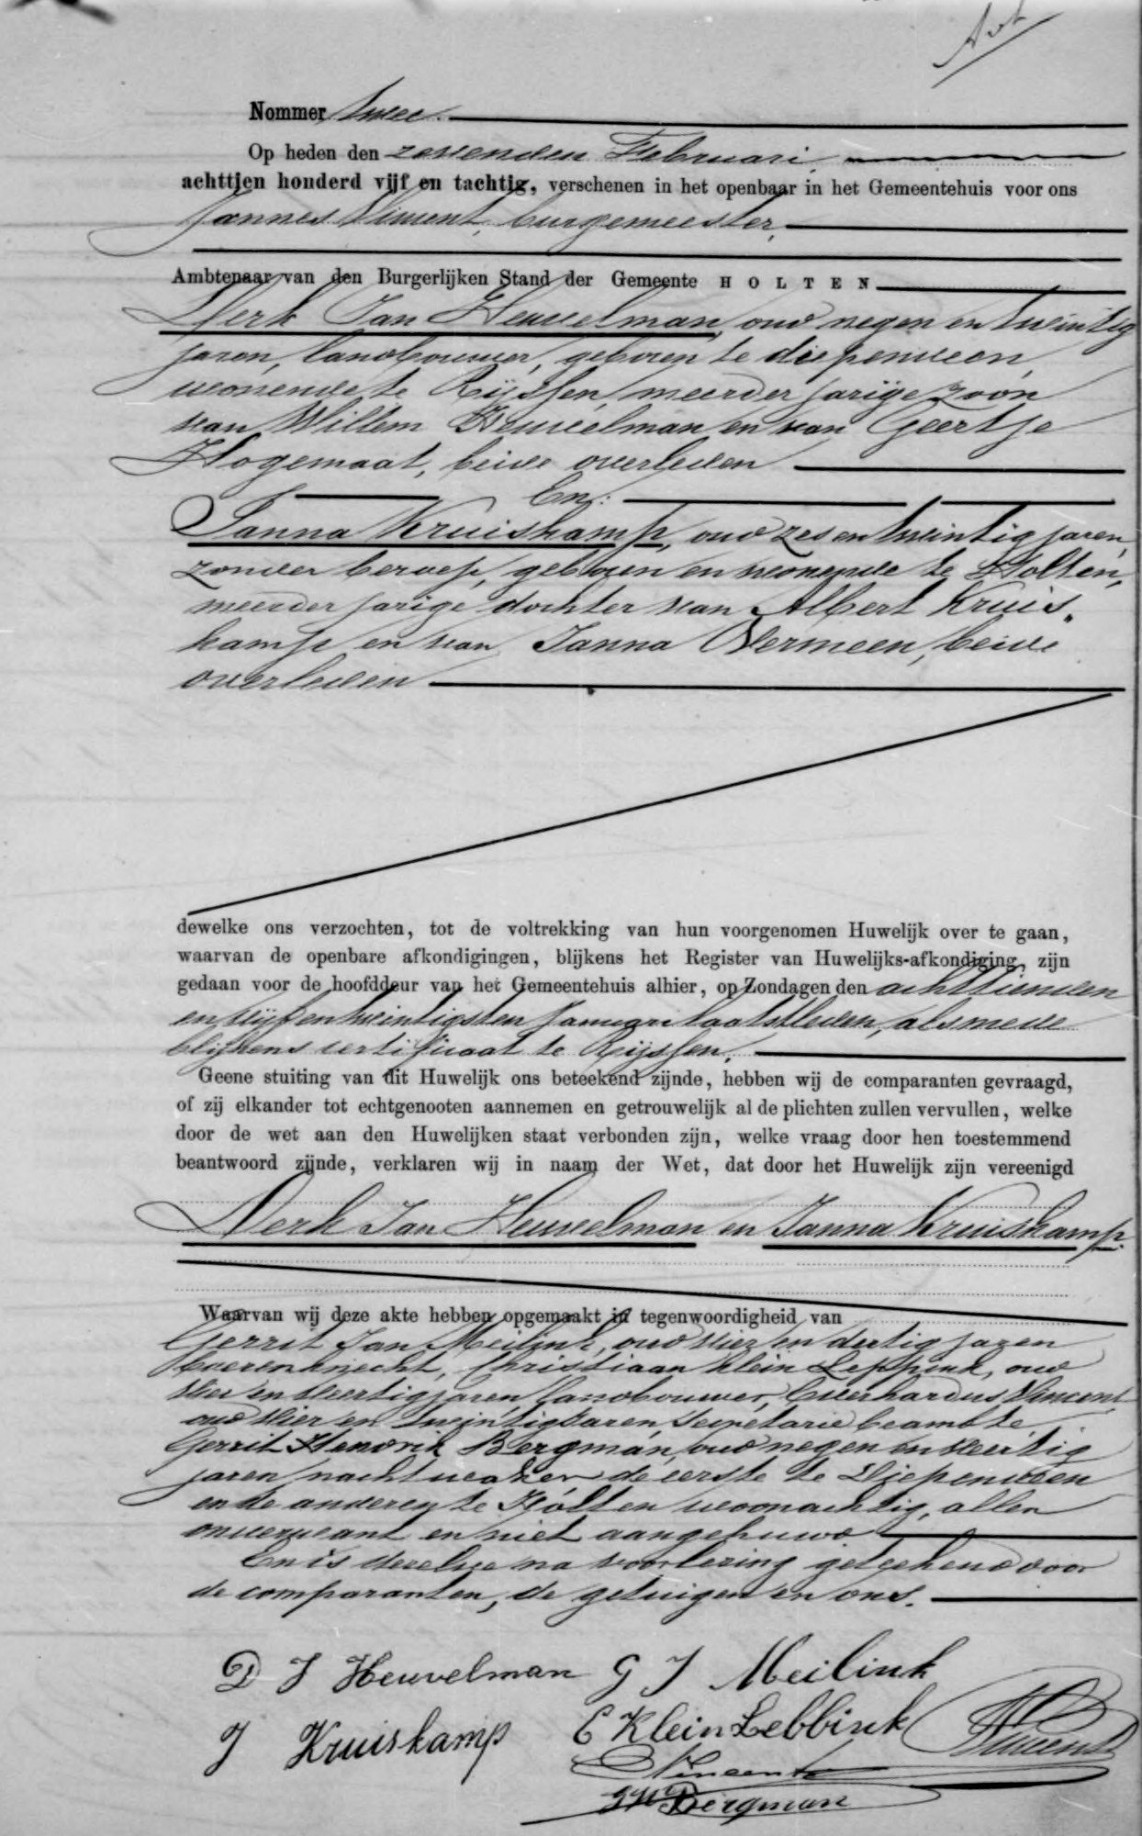 Nommer twee.
Op heden den zevenden Februari
achttien honderd vijf en tachtig, verschenen in het openbaar in het Gemeentehuis voor ons
Jannes Vincent, burgemeester,
Ambtenaar van den Burgerlijken Stand der Gemeente HOLTEN
Derk Jan Heuvelman, oud negen en twintig
jaren, landbouwer, geboren te diepenveen,
wonende te Rijssen, meerderjarige zoon
van Willem Heuvelman en van Geertje
Hogemaat, beide overleden
En:
Janna Kruiskamp, oud zes en twintig jaren,
zonder beroep, geboren en wonende te Holten,
meerderjarige dochter van Albert Kruis-
kamp en van Janna Overmeen, beide
overleden
dewelke ons verzochten, tot de voltrekking van hun voorgenomen Huwelijk over te gaan,
waarvan de openbare afkondigingen, blijkens het Register van Huwelijks-afkondiging, zijn
gedaan voor de hoofddeur van het Gemeentehuis alhier, op Zondagen den achttienden
en vijf en twintigsten Januari laatstleden, alsmede
blijkens certificaat te Rijssen.
Geene stuiting van dit Huwelijk ons beteekend zijnde, hebben wij de comparanten gevraagd,
of zij elkander tot echtgenooten aannemen en getrouwelijk al de plichten zullen vervullen, welke
door de wet aan den Huwelijken staat verbonden zijn, welke vraag door hen toestemmend
beantwoord zijnde, verklaren wij in naam der Wet, dat door het Huwelijk zijn vereenigd
Derk Jan Heuvelman en Janna Kruiskamp.
Waarvan wij deze akte hebben opgemaakt in tegenwoordigheid van
Gerrit Jan Meilink, oud vier en dertig jaren
boerenknecht, Christiaan Klein Lebbink, oud
vier en veertig jaren landbouwer, Everhardus Vincent
oud vier en twintig jaren, secretarie beambte,
Gerrit Hendrik Bergman, oud negen en veertig
jaren, nachtwaker de eerste te Diepenveen
en de anderen te Holten woonachtig, allen
onverwant en niet aangehuwd
En is dezelve na voorlezing geteekend door
de comparanten, de getuigen en ons.
D J Heuvelman G J Meilink
J Kruiskamp C Klein Lebbink Vincent
Vincent
GH Bergman